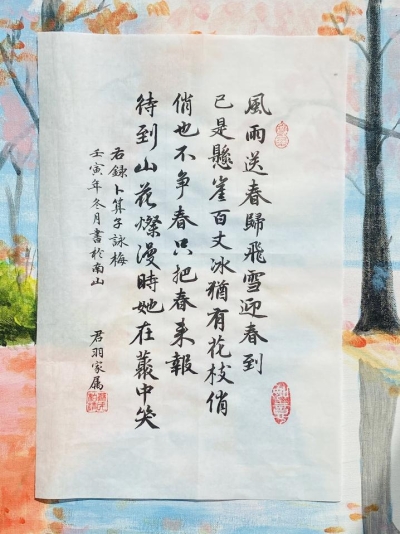 風雨送春歸飛雪迎春到
已是懸崖百丈冰猶有花枝俏
俏也不争春只把春来報
待到山花燦漫時她在叢中笑
右録卜算子詠梅
壬寅年冬月書於南山
君羽家属